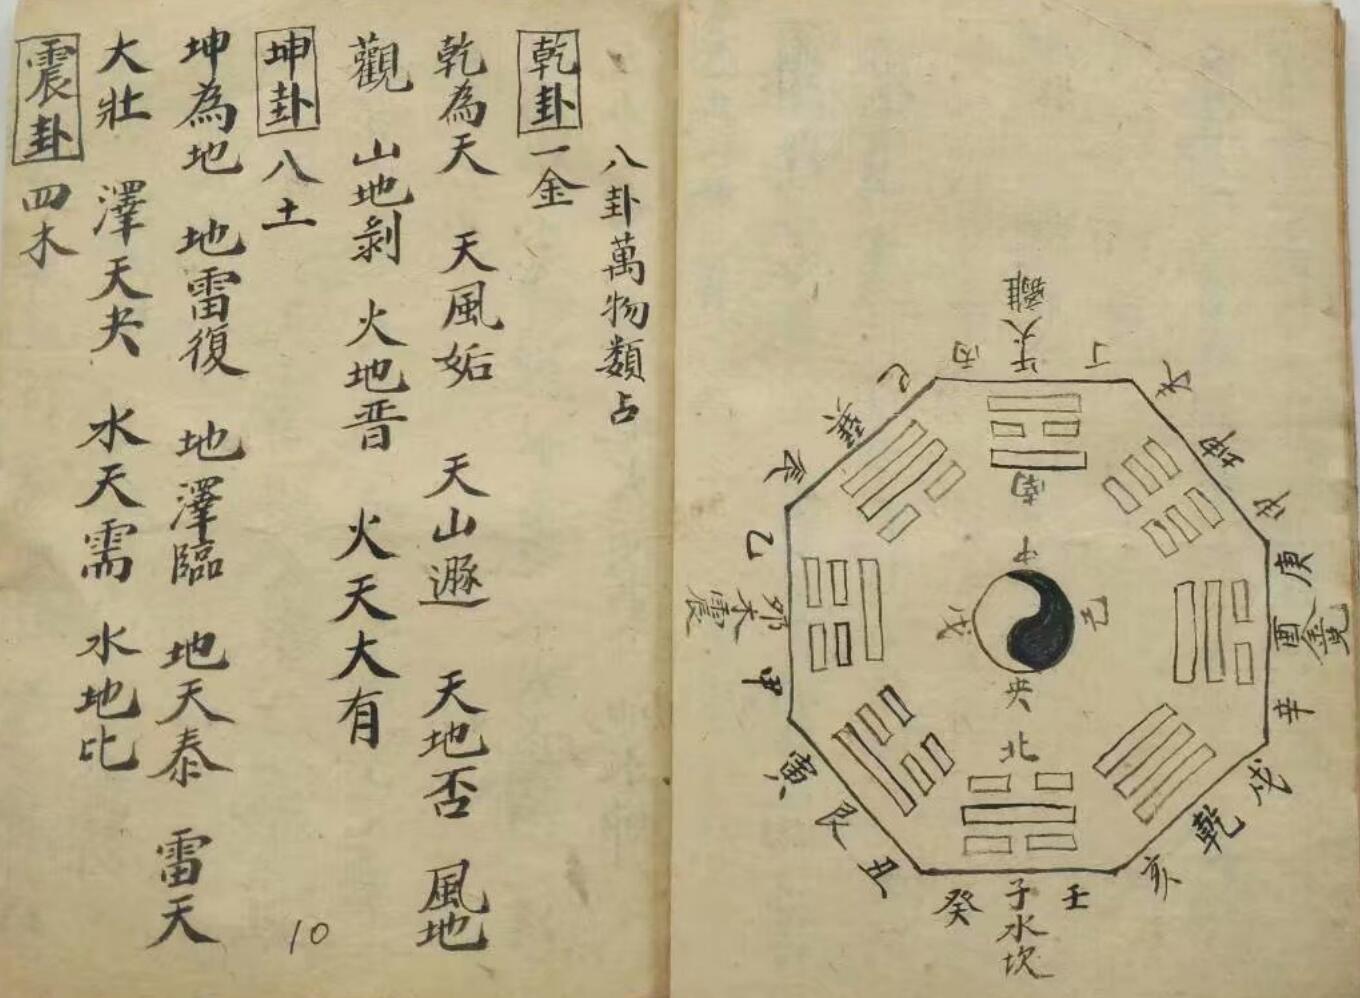 八卦萬物類占
乾卦 一金
乾為天 天風姤 天山遯 天地否 風地
觀 山地剝 火地晋 火天大有
坤卦 八土
坤為地 地雷復 地澤臨 地天泰 雷天
大壯 澤天夬 水天需 水地比
震卦 四木
10
離
火
丁
丙
巳
巽
辰
乙
卯木震
甲
寅
艮
丑
癸
子水坎
壬
亥
乾
戌
辛
酉金兌
庚
坤
南
中
戊
己
央
北